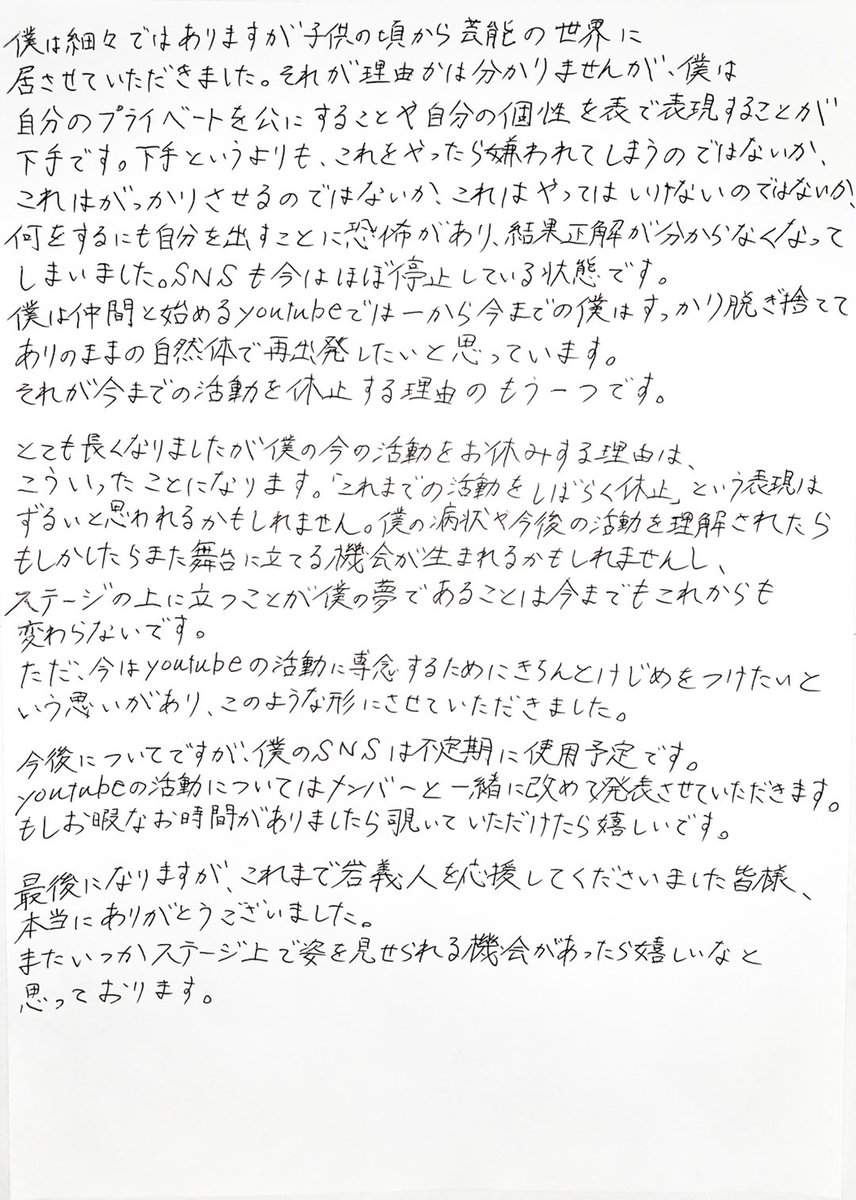 僕は細々ではありますが子供の頃から芸能の世界に
居させていただきました。それが理由かは分かりませんが、僕は
自分のプライベートを公にすることや自分の個性を表で表現することが
下手です。下手というよりも、これをやったら嫌われてしまうのではないか、
これはがっかりさせるのではないか、これはやってはいけないのではないか、
何をするにも自分を出すことに恐怖があり、結果正解が分からなくなって
しまいました。SNSも今はほぼ停止している状態です。
僕は仲間と始めるyoutubeでは一から今までの僕はすっかり脱ぎ捨てて
ありのままの自然体で再出発したいと思っています。
それが今までの活動を休止する理由のもう一つです。
とても長くなりましたが僕の今の活動をお休みする理由は、
こういったことになります。「これまでの活動をしばらく休止」という表現は
ずるいと思われるかもしれません。僕の病状や今後の活動を理解されたら
もしかしたらまた舞台に立てる機会が生まれるかもしれませんし、
ステージの上に立つことが僕の夢であることは今までもこれからも
変わらないです。
ただ、今はyoutubeの活動に専念するためにきちんとけじめをつけたいと
いう思いがあり、このような形にさせていただきました。
今後についてですが、僕のSNSは不定期に使用予定です。
youtubeの活動についてはメンバーと一緒に改めて発表させていただきます。
もしお暇なお時間がありましたら覗いていただけたら嬉しいです。
最後になりますが、これまで岩義人を応援してくださいました皆様、
本当にありがとうございました。
またいつかステージ上で姿を見せられる機会があったら嬉しいなと
思っております。